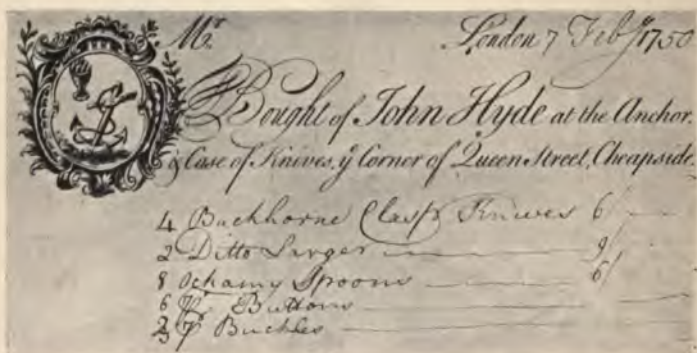 Mr. London 7 Feby 1750
Bought of John Hyde at the Anchor.
& Case of Knives, ye Corner of Queen Street, Cheapside
4 Buckhorne Clasp Knives 6/
2 Ditto Larger 9/
8 Ochamy Spoons 6/
6 Buttons
Buckles